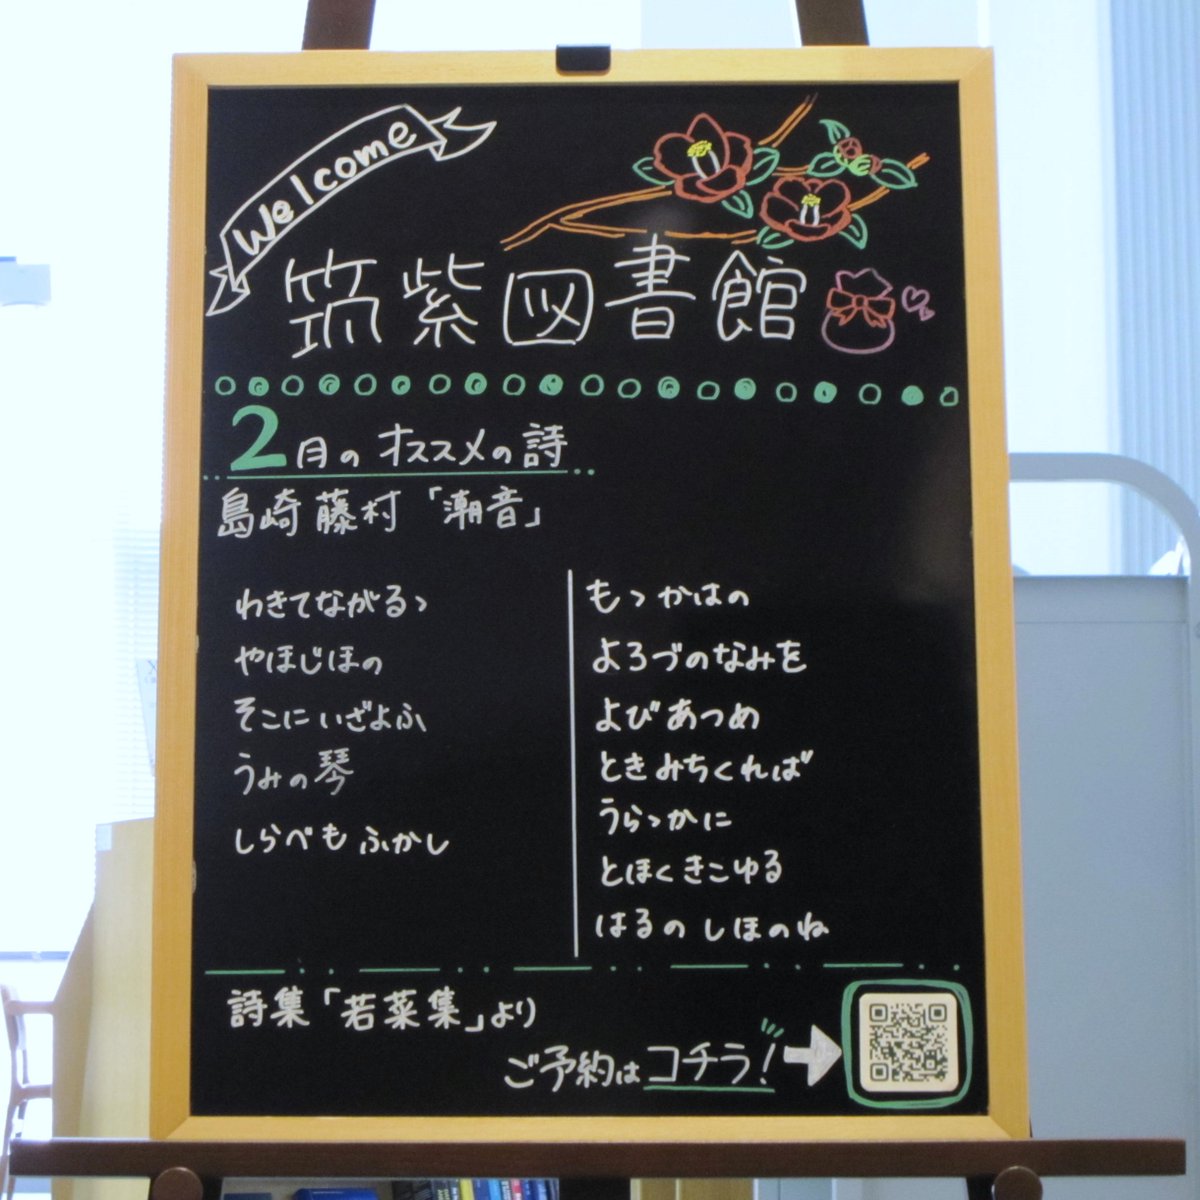 Welcome
筑紫図書館
2月のオススメの詩
島崎藤村「潮音」
わきてながるゝ
やほじほの
そこにいざよふ
うみの琴
しらべもふかし
もゝかはの
よろづのなみを
よびあつめ
ときみちくれば
うらゝかに
とほくきこゆる
はるのしほのね
詩集「若菜集」より
ご予約はコチラ!